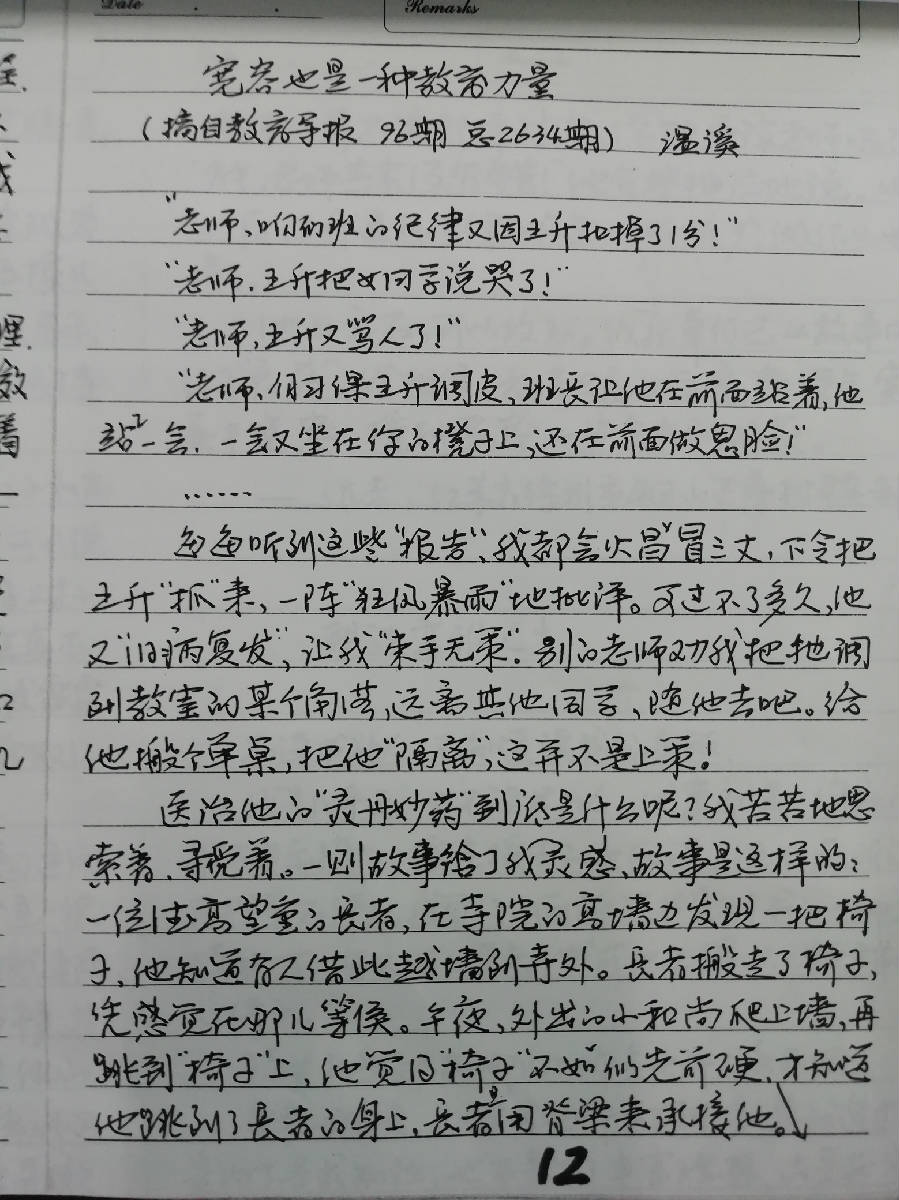 Date . . .
Remarks
宽容也是一种教育力量
(摘自教育导报 96期 总2634期) 温溪
"老师、咱们班的纪律又因王升扣掉了1分!"
"老师.王升把女同学说哭了!"
"老师,王升又骂人了!"
"老师、自习课王升调皮,班长让他在前面站着,他
站一会.一会又坐在你的凳子上,还在前面做鬼脸!"
……
每每听到这些"报告"、我都会火冒三丈,下令把
王升"抓"来,一阵"狂风暴雨"地批评。可过不了多久,他
又"旧病复发",让我"束手无策".别的老师劝我把他调
到教室的某个角落,远离其他同学、随他去吧。给
他搬个单桌,把他"隔离",这并不是上策!
医治他的"灵丹妙药"到底是什么呢?我苦苦地思
索着、寻觅着。一则故事给了我灵感、故事是这样的:
一位德高望重的长者,在寺院的高墙边发现一把椅
子,他知道有人借此越墙到寺外。长者搬走了椅子,
凭感觉在那儿等候。午夜,外出的小和尚爬上墙,再
跳到"椅子"上,他觉得"椅子"不如似先前硬、才知道
他跳到了长者的身上,长者是用脊梁来承接他。
12